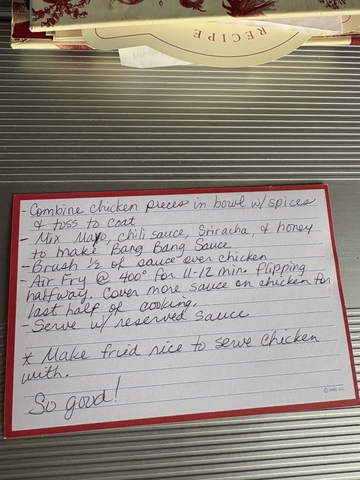 RECIPE
- Combine chicken pieces in bowl w/ spices
& toss to coat
- Mix Mayo, chili sauce, Sriracha, & honey
to make Bang Bang Sauce
- Brush ½ of sauce over chicken
- Air Fry @ 400° for 11-12 min. flipping
halfway. Cover more sauce on chicken for
last half of cooking.
- Serve w/ reserved sauce
* Make fried rice to serve chicken
with.
So good!